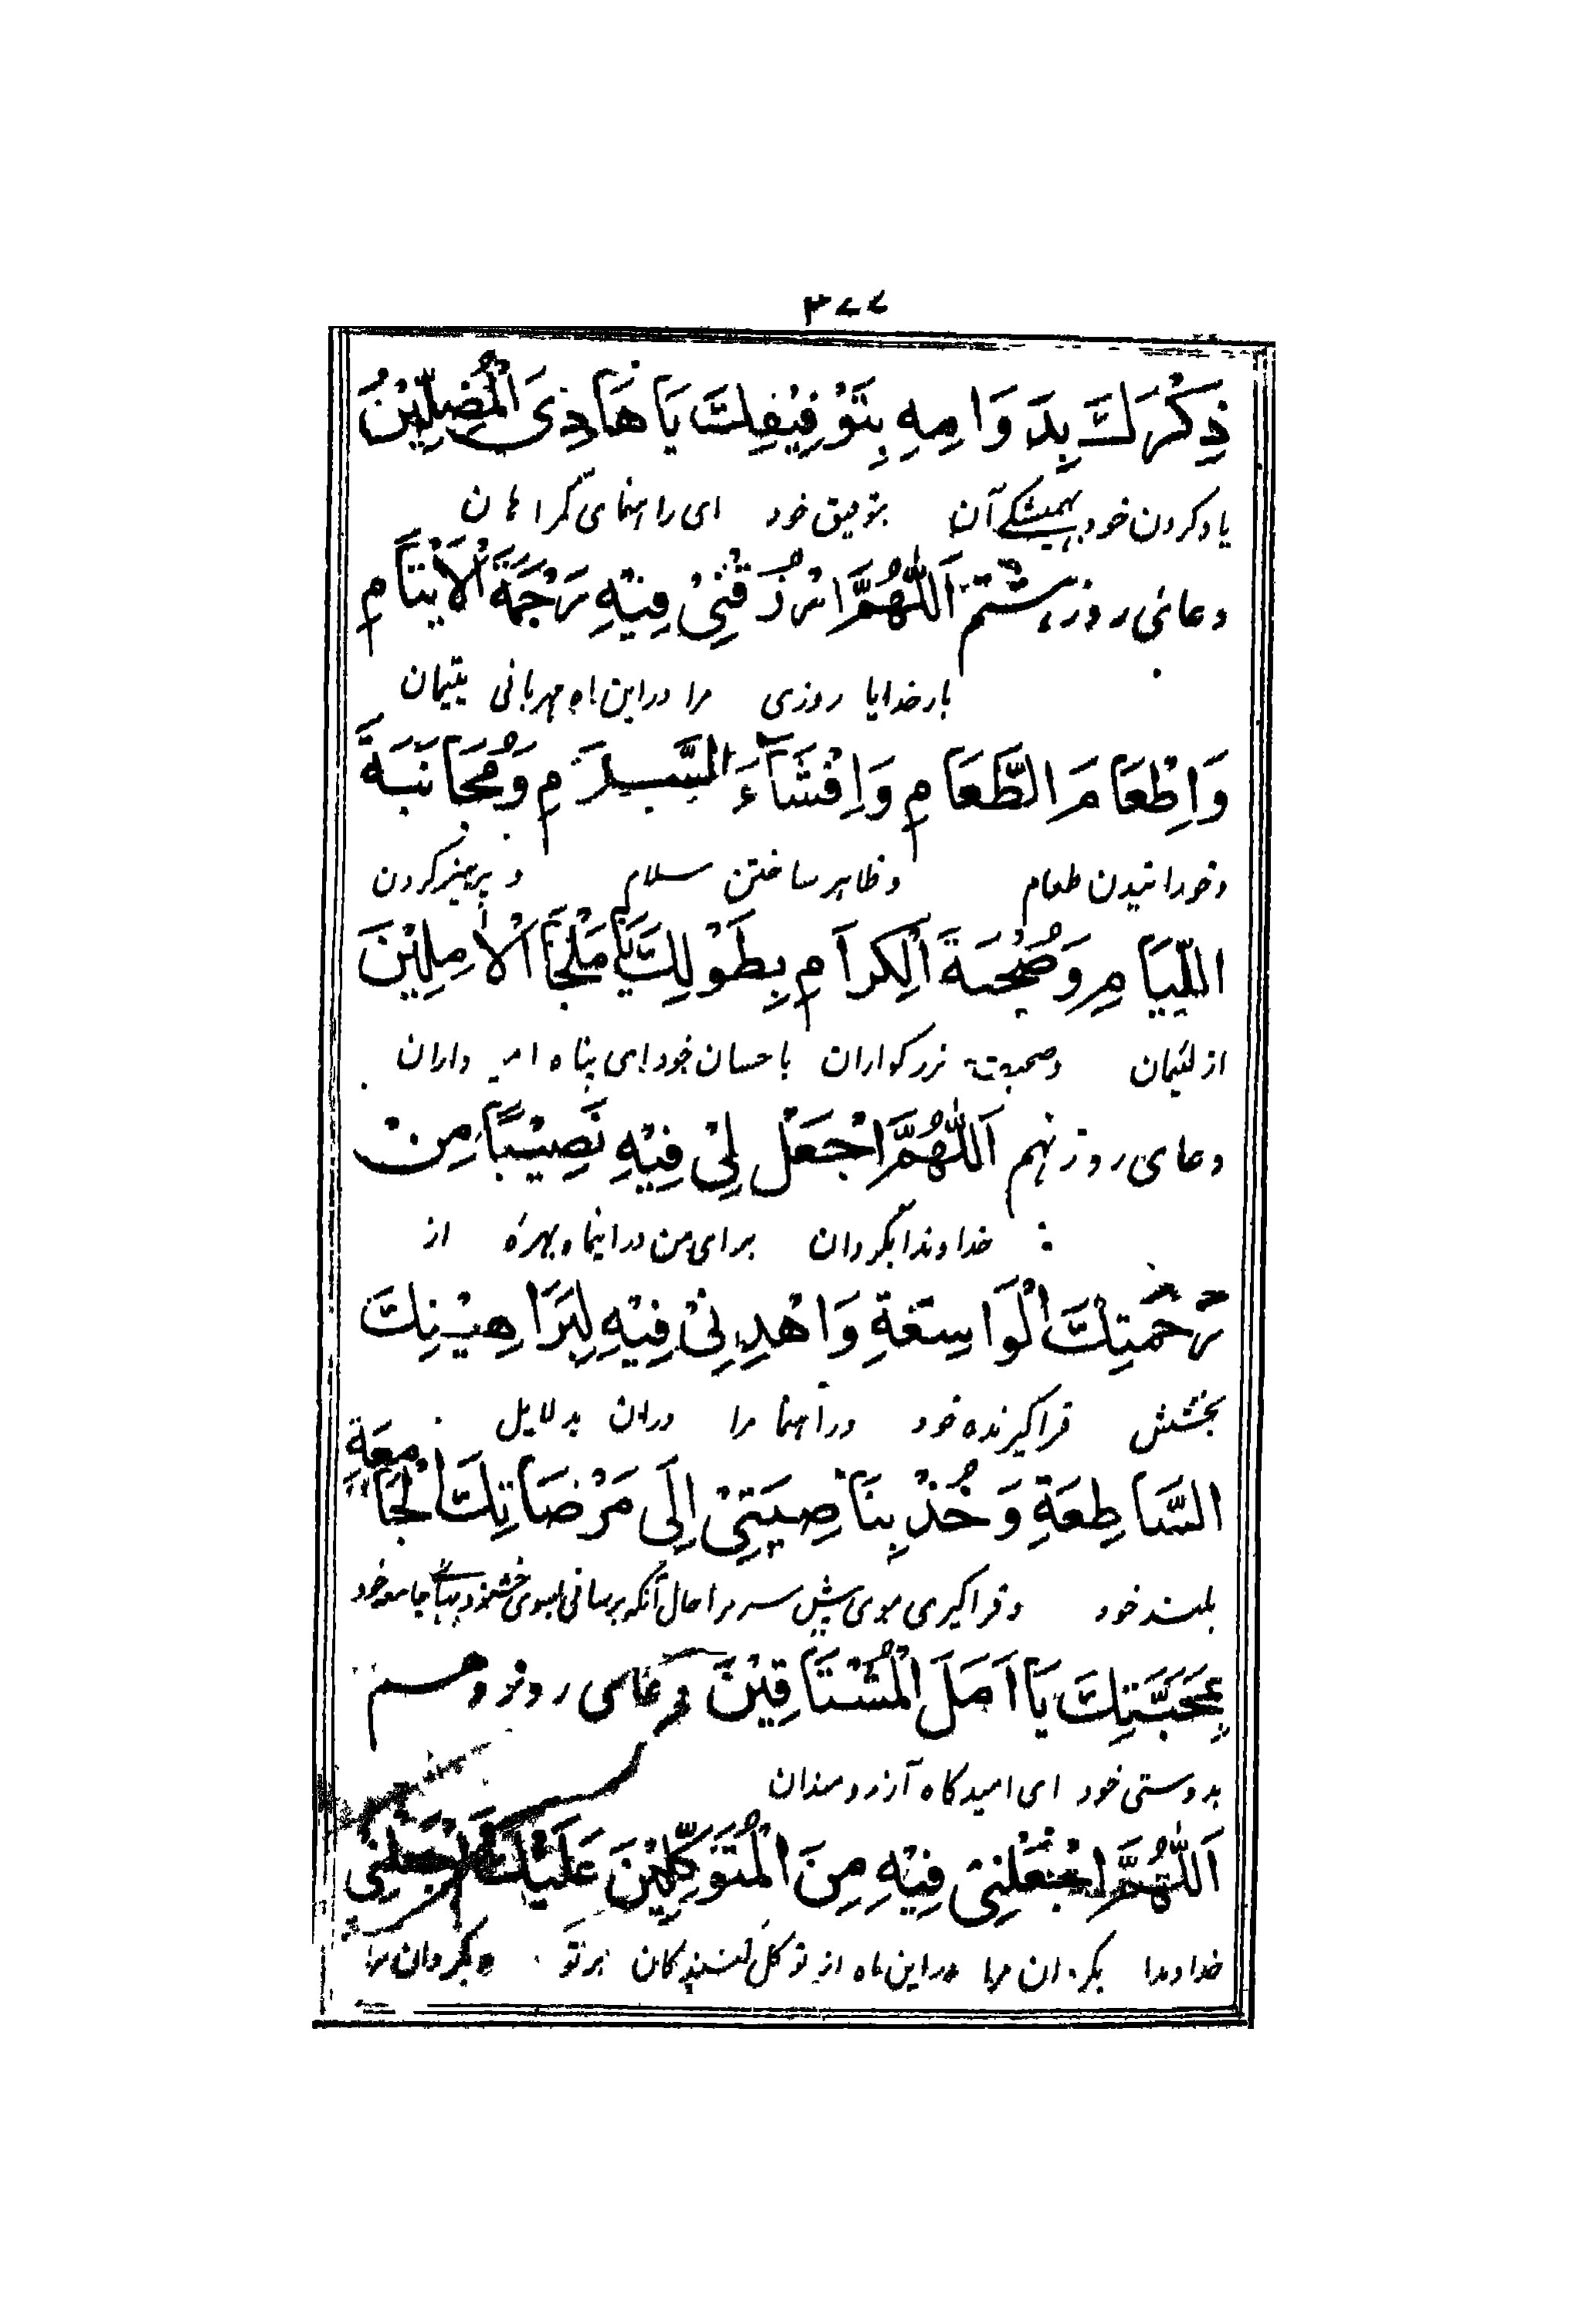 ۳۷۷
ذِكْرَكَ بِدَوَامِهِ بِتَوْفِيْقِكَ يَا هَادِىَ الْمُضِلِّيْنَ
یاد کردن خود بهمیشگی آن بتوفیق خود ای راهنمای گمراهان
دعای روز هشتم اَللّٰهُمَّ ارْزُقْنِىْ فِيْهِ رَحْمَةَ الْاَيْتَامِ
بارخدایا روزی مرا دراین ماه مهربانی یتیمان
وَاِطْعَامَ الطَّعَامِ وَاِفْشَآءَ السَّلَامِ وَمُجَانَبَةَ
وخورانیدن طعام وظاهر ساختن سلام و پرهیز کردن
اللِّيَامِ وَصُحْبَةَ الْكِرَامِ بِطَوْلِكَ يَا مَلْجَأَ الْاٰمِلِيْنَ
از لئیمان وصحبت بزرگواران باحسان خود ای پناه امیدواران
دعای روز نهم اَللّٰهُمَّ اجْعَلْ لِىْ فِيْهِ نَصِيْبًا مِنْ
خداوندا بگردان برای من دراینماه بهرهٔ از
رَحْمَتِكَ الْوَاسِعَةِ وَاهْدِنِىْ فِيْهِ لِبَرَاهِيْنِكَ
بخشش فراگیرنده خود وراهنما مرا دران بدلایل
السَّاطِعَةِ وَخُذْ بِنَاصِيَتِىْ اِلَى مَرْضَاتِكَ الْجَامِعَةِ
بلند خود وفراگیری موی پیش سر مرا حال آنکه برسانی بسوی خشنودیهای جامعه خود
بِمَحَبَّتِكَ يَا اَمَلَ الْمُشْتَاقِيْنَ دعای روز دهم
بدوستی خود ای امیدگاه آرزومندان
اَللّٰهُمَّ اجْعَلْنِىْ فِيْهِ مِنَ الْمُتَوَكِّلِيْنَ عَلَيْكَ وَاجْعَلْنِىْ
خداوندا بگردان مرا دراین ماه از توکل کنندگان برتو وبگردان مرا